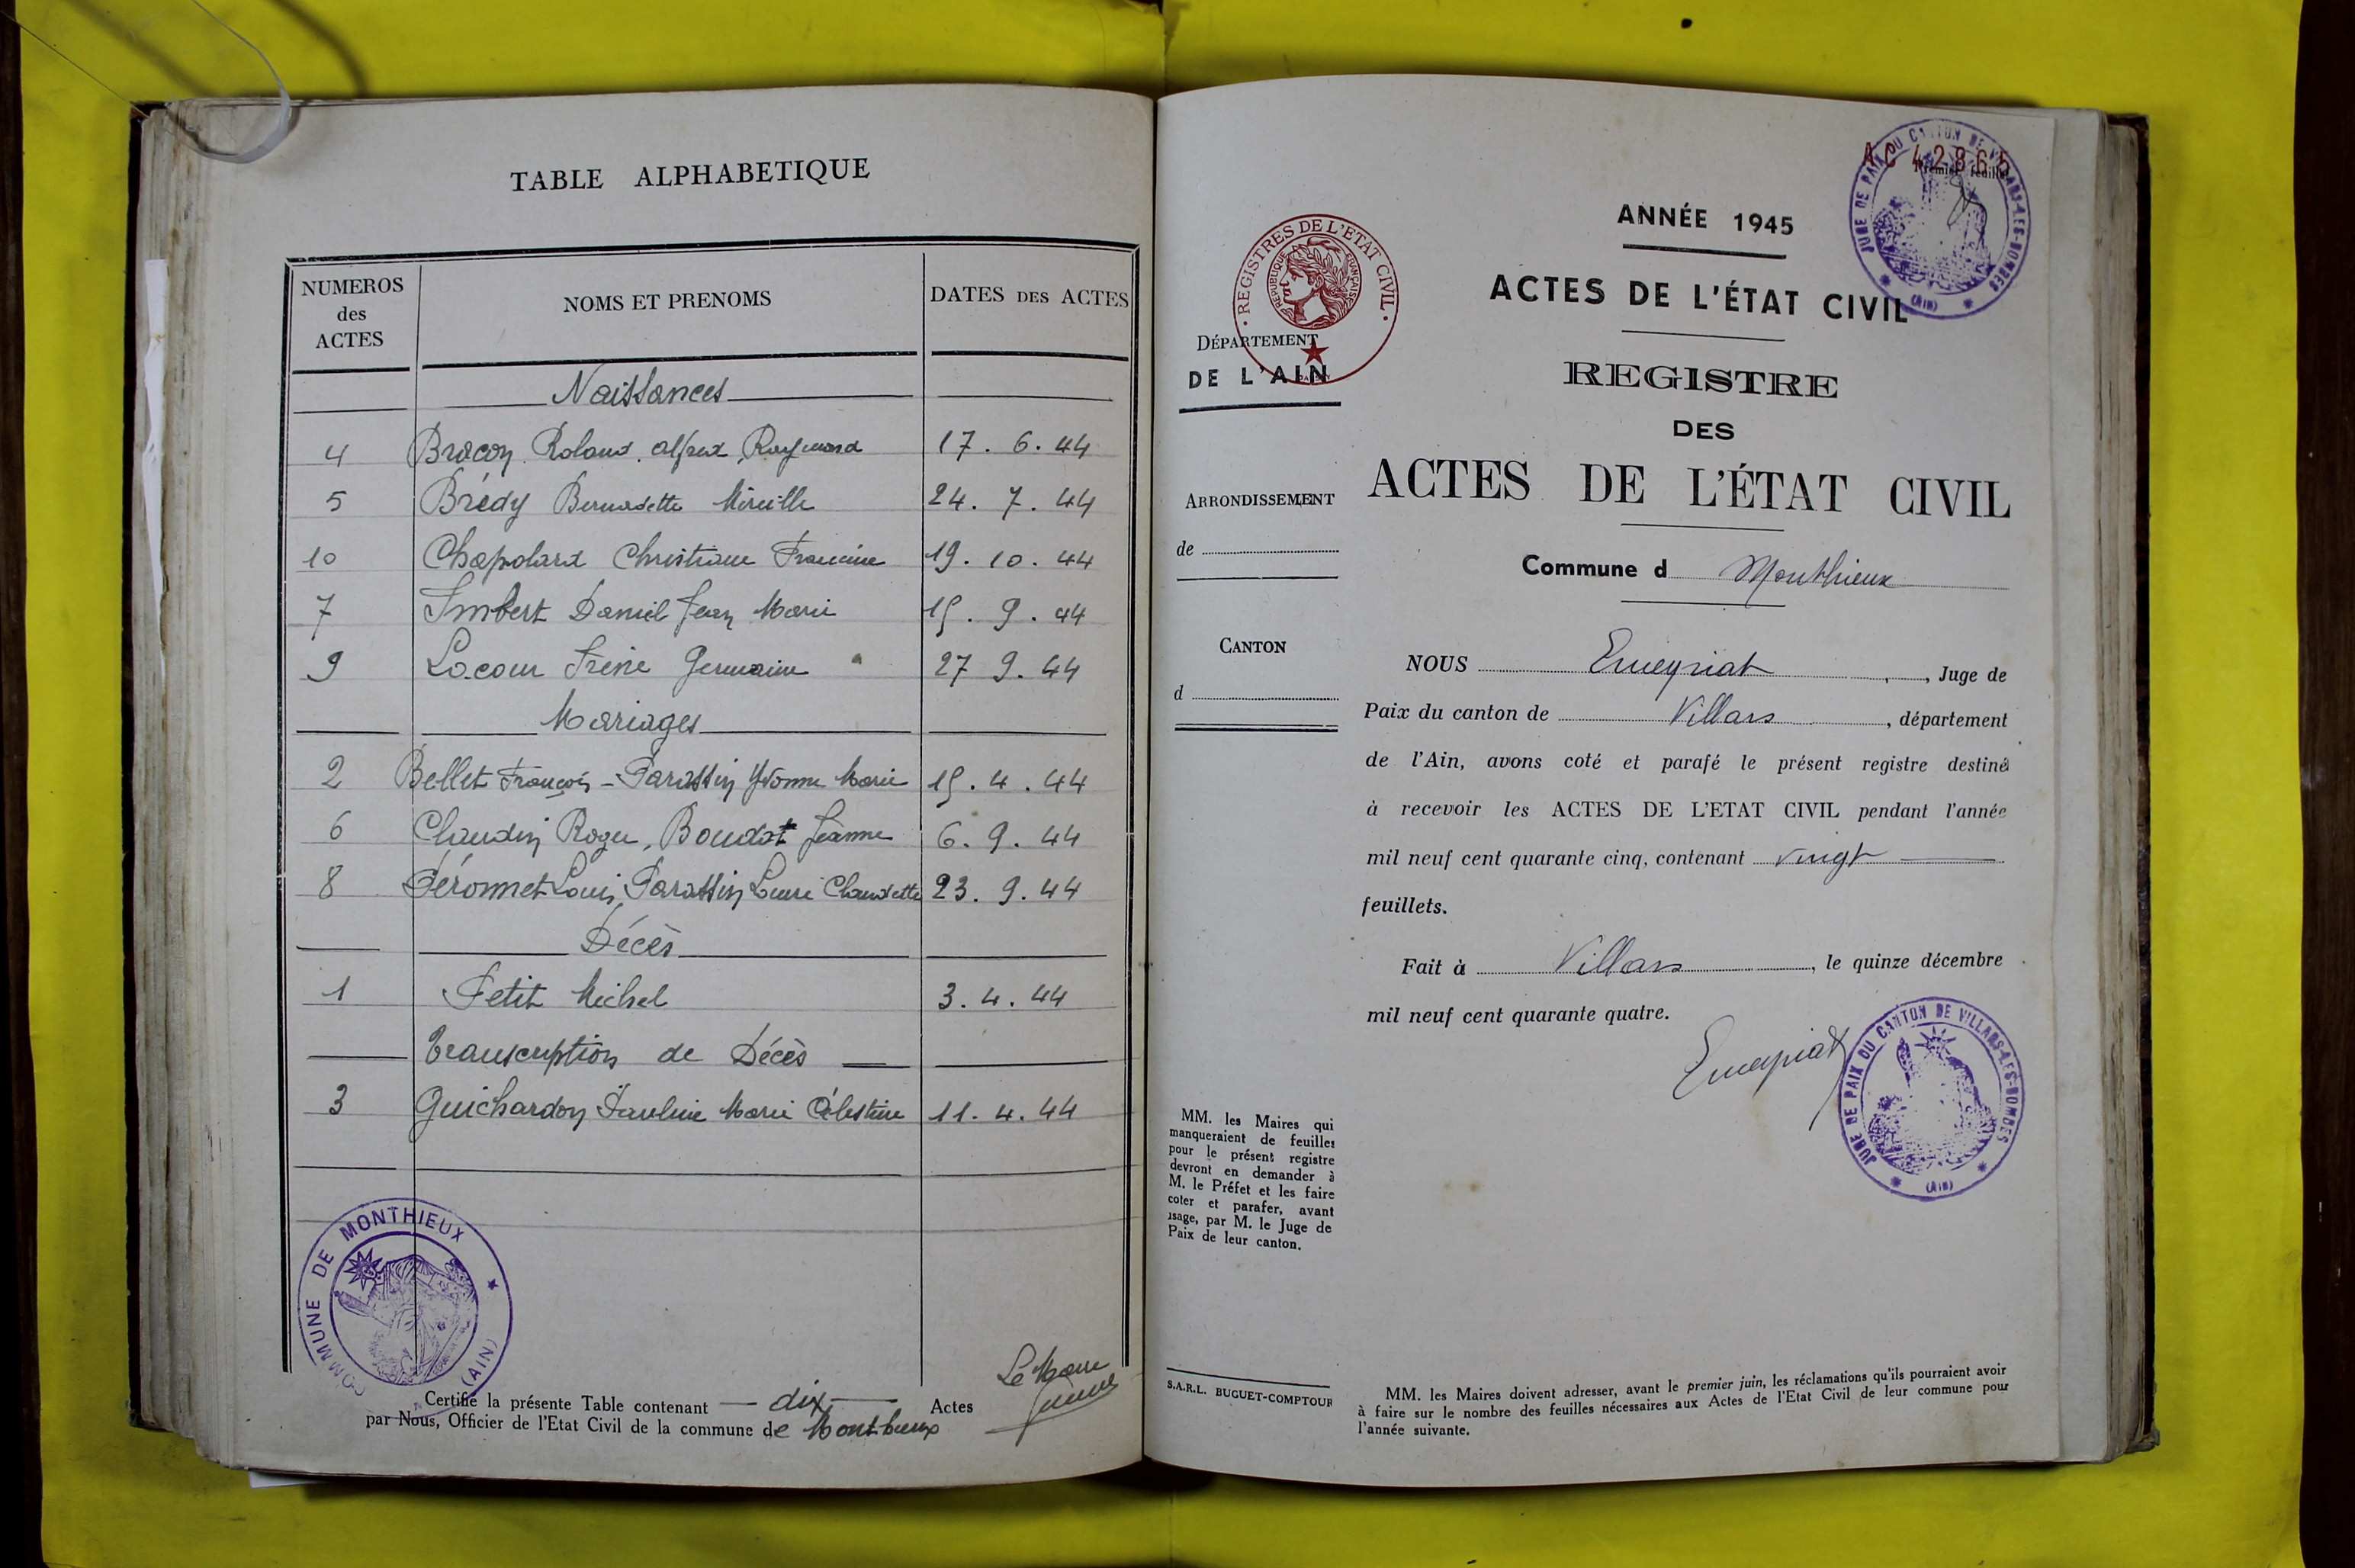 TABLE ALPHABETIQUE
NUMEROS des ACTES NOMS ET PRENOMS DATES DES ACTES
Naissances
4 Bracon Roland Alfred Raymond 17. 6. 44
5 Brédy Bernadette Mireille 24. 7. 44
10 Chapolard Christiane Francine 19. 10. 44
7 Imbert Daniel Jean Marie 15. 9. 44
9 Lacour Irène Germaine 27 9. 44
Mariages
2 Bellet François - Parassin Yvonne Marie 15. 4. 44
6 Claudin Roger, Boudot Jeanne 6. 9. 44
8 Péronnet Louis, Parassin Claudette 23. 9. 44
Décès
1 Petit Michel 3. 4. 44
Transcription de Décès
3 Guichardon Pauline Marie Célestine 11. 4. 44
COMMUNE DE MONTHIEUX (AIN)
Le Maire
Certifié la présente Table contenant dix Actes
par Nous, Officier de l'Etat Civil de la commune de Monthieux
AC 42865
Premier feuillet
JUGE DE PAIX DU CANTON DE VILLARS-LES-DOMBES (AIN)
ANNÉE 1945
ACTES DE L'ÉTAT CIVIL
REGISTRES DE L'ETAT CIVIL
REPUBLIQUE FRANÇAISE
DÉPARTEMENT
DE L'AIN
REGISTRE
DES
ACTES DE L'ÉTAT CIVIL
ARRONDISSEMENT
de
Commune d Monthieux
CANTON
d
NOUS Emeyriat, Juge de
Paix du canton de Villars, département
de l'Ain, avons coté et parafé le présent registre destiné
à recevoir les ACTES DE L'ETAT CIVIL pendant l'année
mil neuf cent quarante cinq, contenant vingt
feuillets.
Fait à Villars, le quinze décembre
mil neuf cent quarante quatre.
Emeyriat
JUGE DE PAIX DU CANTON DE VILLARS-LES-DOMBES (AIN)
MM. les Maires qui
manqueraient de feuilles
pour le présent registre
devront en demander à
M. le Préfet et les faire
coter et parafer, avant
usage, par M. le Juge de
Paix de leur canton.
S.A.R.L. BUGUET-COMPTOUR
MM. les Maires doivent adresser, avant le premier juin, les réclamations qu'ils pourraient avoir
à faire sur le nombre des feuilles nécessaires aux Actes de l'Etat Civil de leur commune pour
l'année suivante.